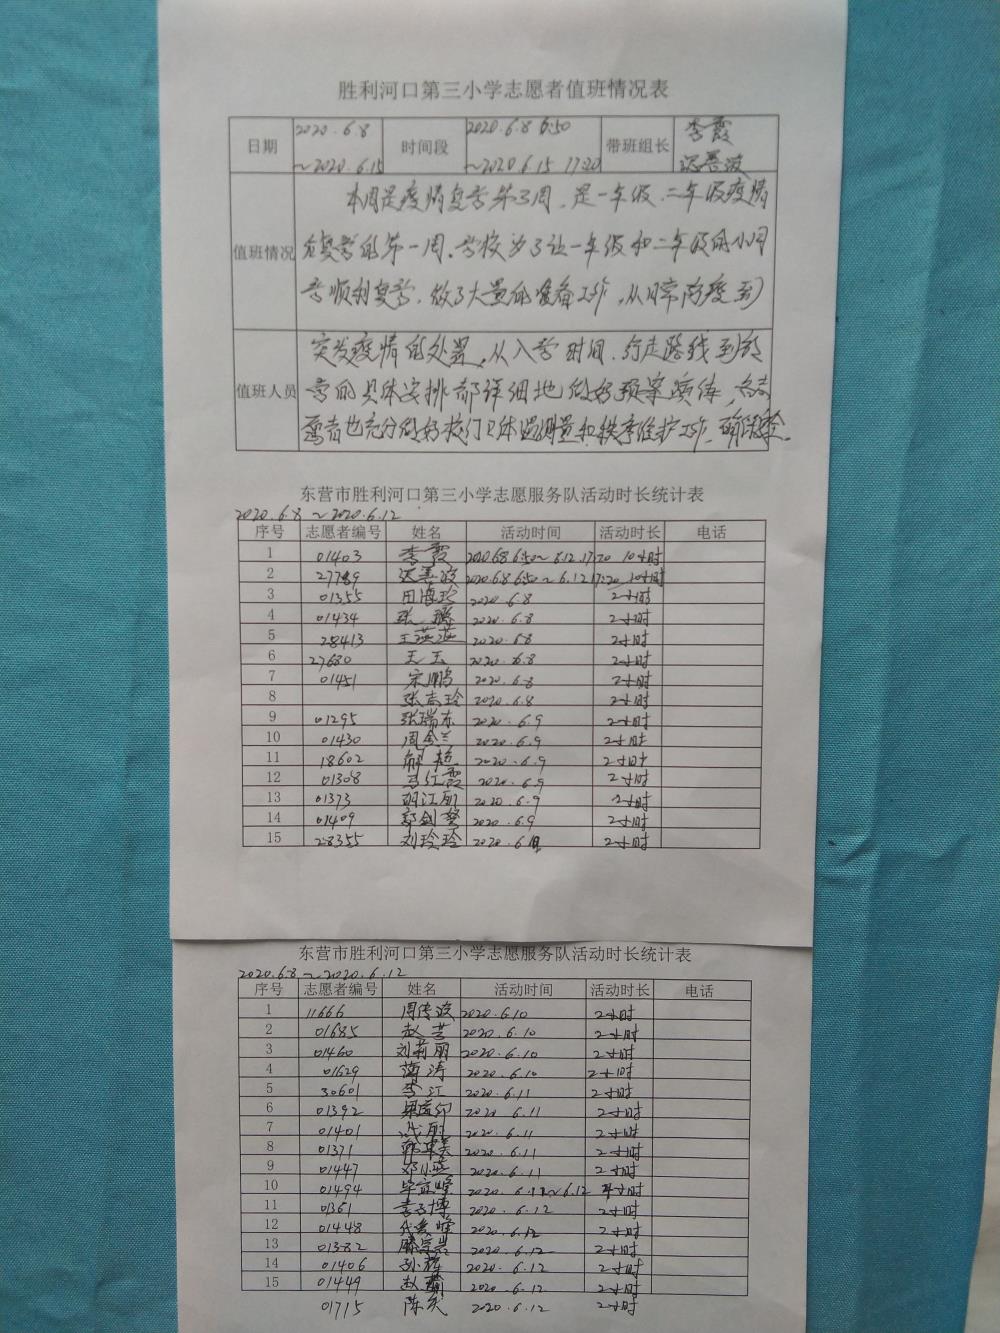 胜利河口第三小学志愿者值班情况表
日期 2020.6.8 ~2020.6.15 时间段 2020.6.8 6:50 ~2020.6.15 17:20 带班组长 李霞 迟善波
值班情况 本周是疫情复学第三周，是一年级、二年级疫情
后复学的第一周。学校为了让一年级和二年级的小同
学顺利复学，做了大量的准备工作，从日常防疫到
值班人员 突发疫情的处置，从入学时间、行走路线到放
学的具体安排都详细地做好预案演练，各志
愿者也充分做好校门口体温测量和秩序维护工作，确保安全。
东营市胜利河口第三小学志愿服务队活动时长统计表
2020.6.8 ~ 2020.6.12
序号 志愿者编号 姓名 活动时间 活动时长 电话
1 01403 李霞 2020.6.8 6:50~6.12 17:20 10小时
2 27789 迟善波 2020.6.8 6:50~6.12 17:20 10小时
3 01355 田海珍 2020.6.8 2小时
4 01434 张鹏 2020.6.8 2小时
5 28413 王燕燕 2020.6.8 2小时
6 27680 王玉 2020.6.8 2小时
7 01451 宋鹏 2020.6.8 2小时
8 张志玲 2020.6.8 2小时
9 01295 张瑞东 2020.6.9 2小时
10 01430 周金兰 2020.6.9 2小时
11 18602 解艳 2020.6.9 2小时
12 01308 马红霞 2020.6.9 2小时
13 01373 胡江丽 2020.6.9 2小时
14 01409 郭剑 2020.6.9 2小时
15 28355 刘玲玲 2020.6.10 2小时
东营市胜利河口第三小学志愿服务队活动时长统计表
2020.6.8 ~ 2020.6.12
序号 志愿者编号 姓名 活动时间 活动时长 电话
1 11666 周传波 2020.6.10 2小时
2 01685 赵芸 2020.6.10 2小时
3 01460 刘莉丽 2020.6.10 2小时
4 01629 薄涛 2020.6.10 2小时
5 30601 李江 2020.6.11 2小时
6 01392 2020.6.11 2小时
7 01401 2020.6.11 2小时
8 01371 2020.6.11 2小时
9 01447 邓小燕 2020.6.11 2小时
10 01494 毕益峰 2020.6.11~6.12 4小时
11 01361 李子博 2020.6.12 2小时
12 01448 代爱峰 2020.6.12 2小时
13 01382 滕宗岩 2020.6.12 2小时
14 01406 孙辉 2020.6.12 2小时
15 01449 赵 2020.6.12 2小时
01715 陈 2020.6.12 2小时